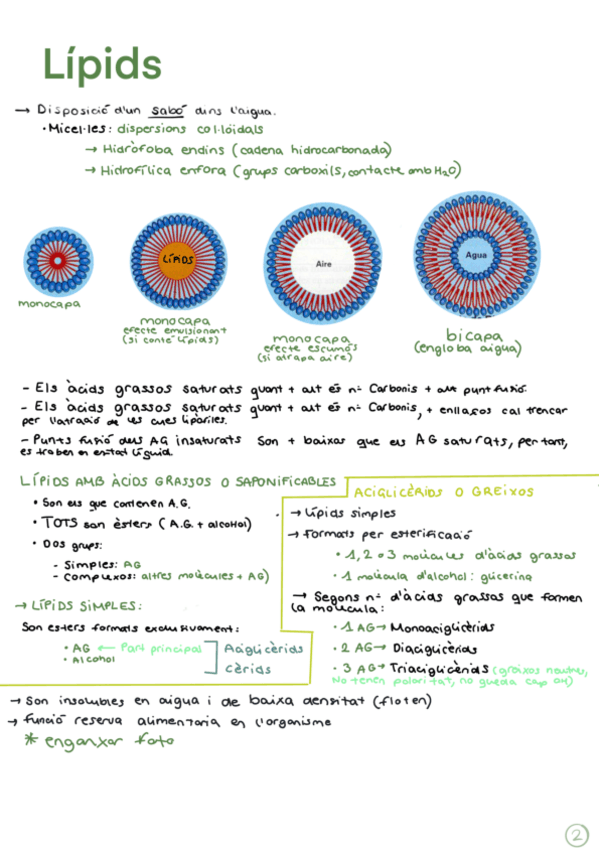 Lípids
→ Disposició d'un sabó dins l'aigua.
· Micel·les: dispersions col·loidals
→ Hidròfoba endins (cadena hidrocarbonada)
→ Hidrofílica enfora (grups carboxils, contacte amb H2O)
LÍPIDS
Aire
Agua
monocapa
monocapa
efecte emulsionant
(si conté lípids)
monocapa
efecte escumós
(si atrapa aire)
bicapa
(engloba aigua)
- Els àcids grassos saturats quant + alt és nº Carbonis + alt punt fusió.
- Els àcids grassos saturats quant + alt és nº Carbonis, + enllaços cal trencar
per l'atracció de les cues lipòfiles.
- Punts fusió dels AG insaturats són + baixos que els AG saturats, per tant,
es troben en estat líquid.
LÍPIDS AMB ÀCIDS GRASSOS O SAPONIFICABLES
• Són els que contenen A.G.
• TOTS són èsters (A.G. + alcohol)
• Dos grups:
- Simples: AG
- Complexos: altres molècules + AG)
→ LÍPIDS SIMPLES:
Són esters formats exclusivament:
• AG ← Part principal
• Alcohol
Acilglicèrids
cèrids
ACIGLICÈRIDS O GREIXOS
→ Lípids simples
→ Formats per esterificació
• 1, 2 o 3 molècules d'àcids grassos
• 1 molècula d'alcohol: glicerina
→ Segons nº d'àcids grassos que formen
la molècula:
• 1 AG → Monoaciglicèrids
• 2 AG → Diaciglicèrids
• 3 AG → Triaciglicèrids (greixos neutres,
No tenen polaritat, no queda cap OH)
→ Són insolubles en aigua i de baixa densitat (floten)
→ Funció reserva alimentaria en l'organisme
* enganxar foto
2